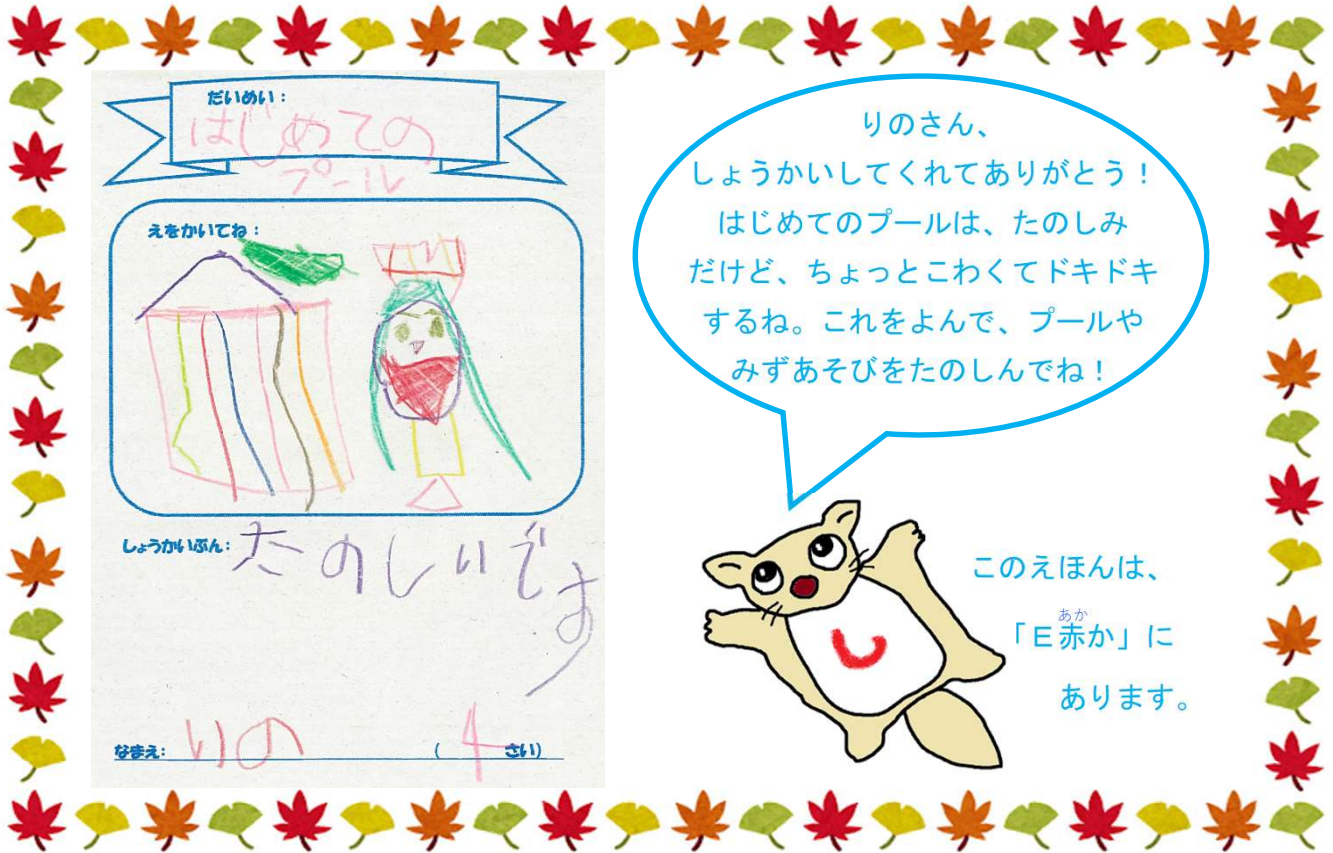 だいめい：
はじめての
プール
えをかいてね：
しょうかいぶん：
たのしいで
す
なまえ： りの （ 4 さい）
りのさん、
しょうかいしてくれてありがとう！
はじめてのプールは、たのしみ
だけど、ちょっとこわくてドキドキ
するね。これをよんで、プールや
みずあそびをたのしんでね！
し
このえほんは、
あか
「Ｅ赤か」に
あります。